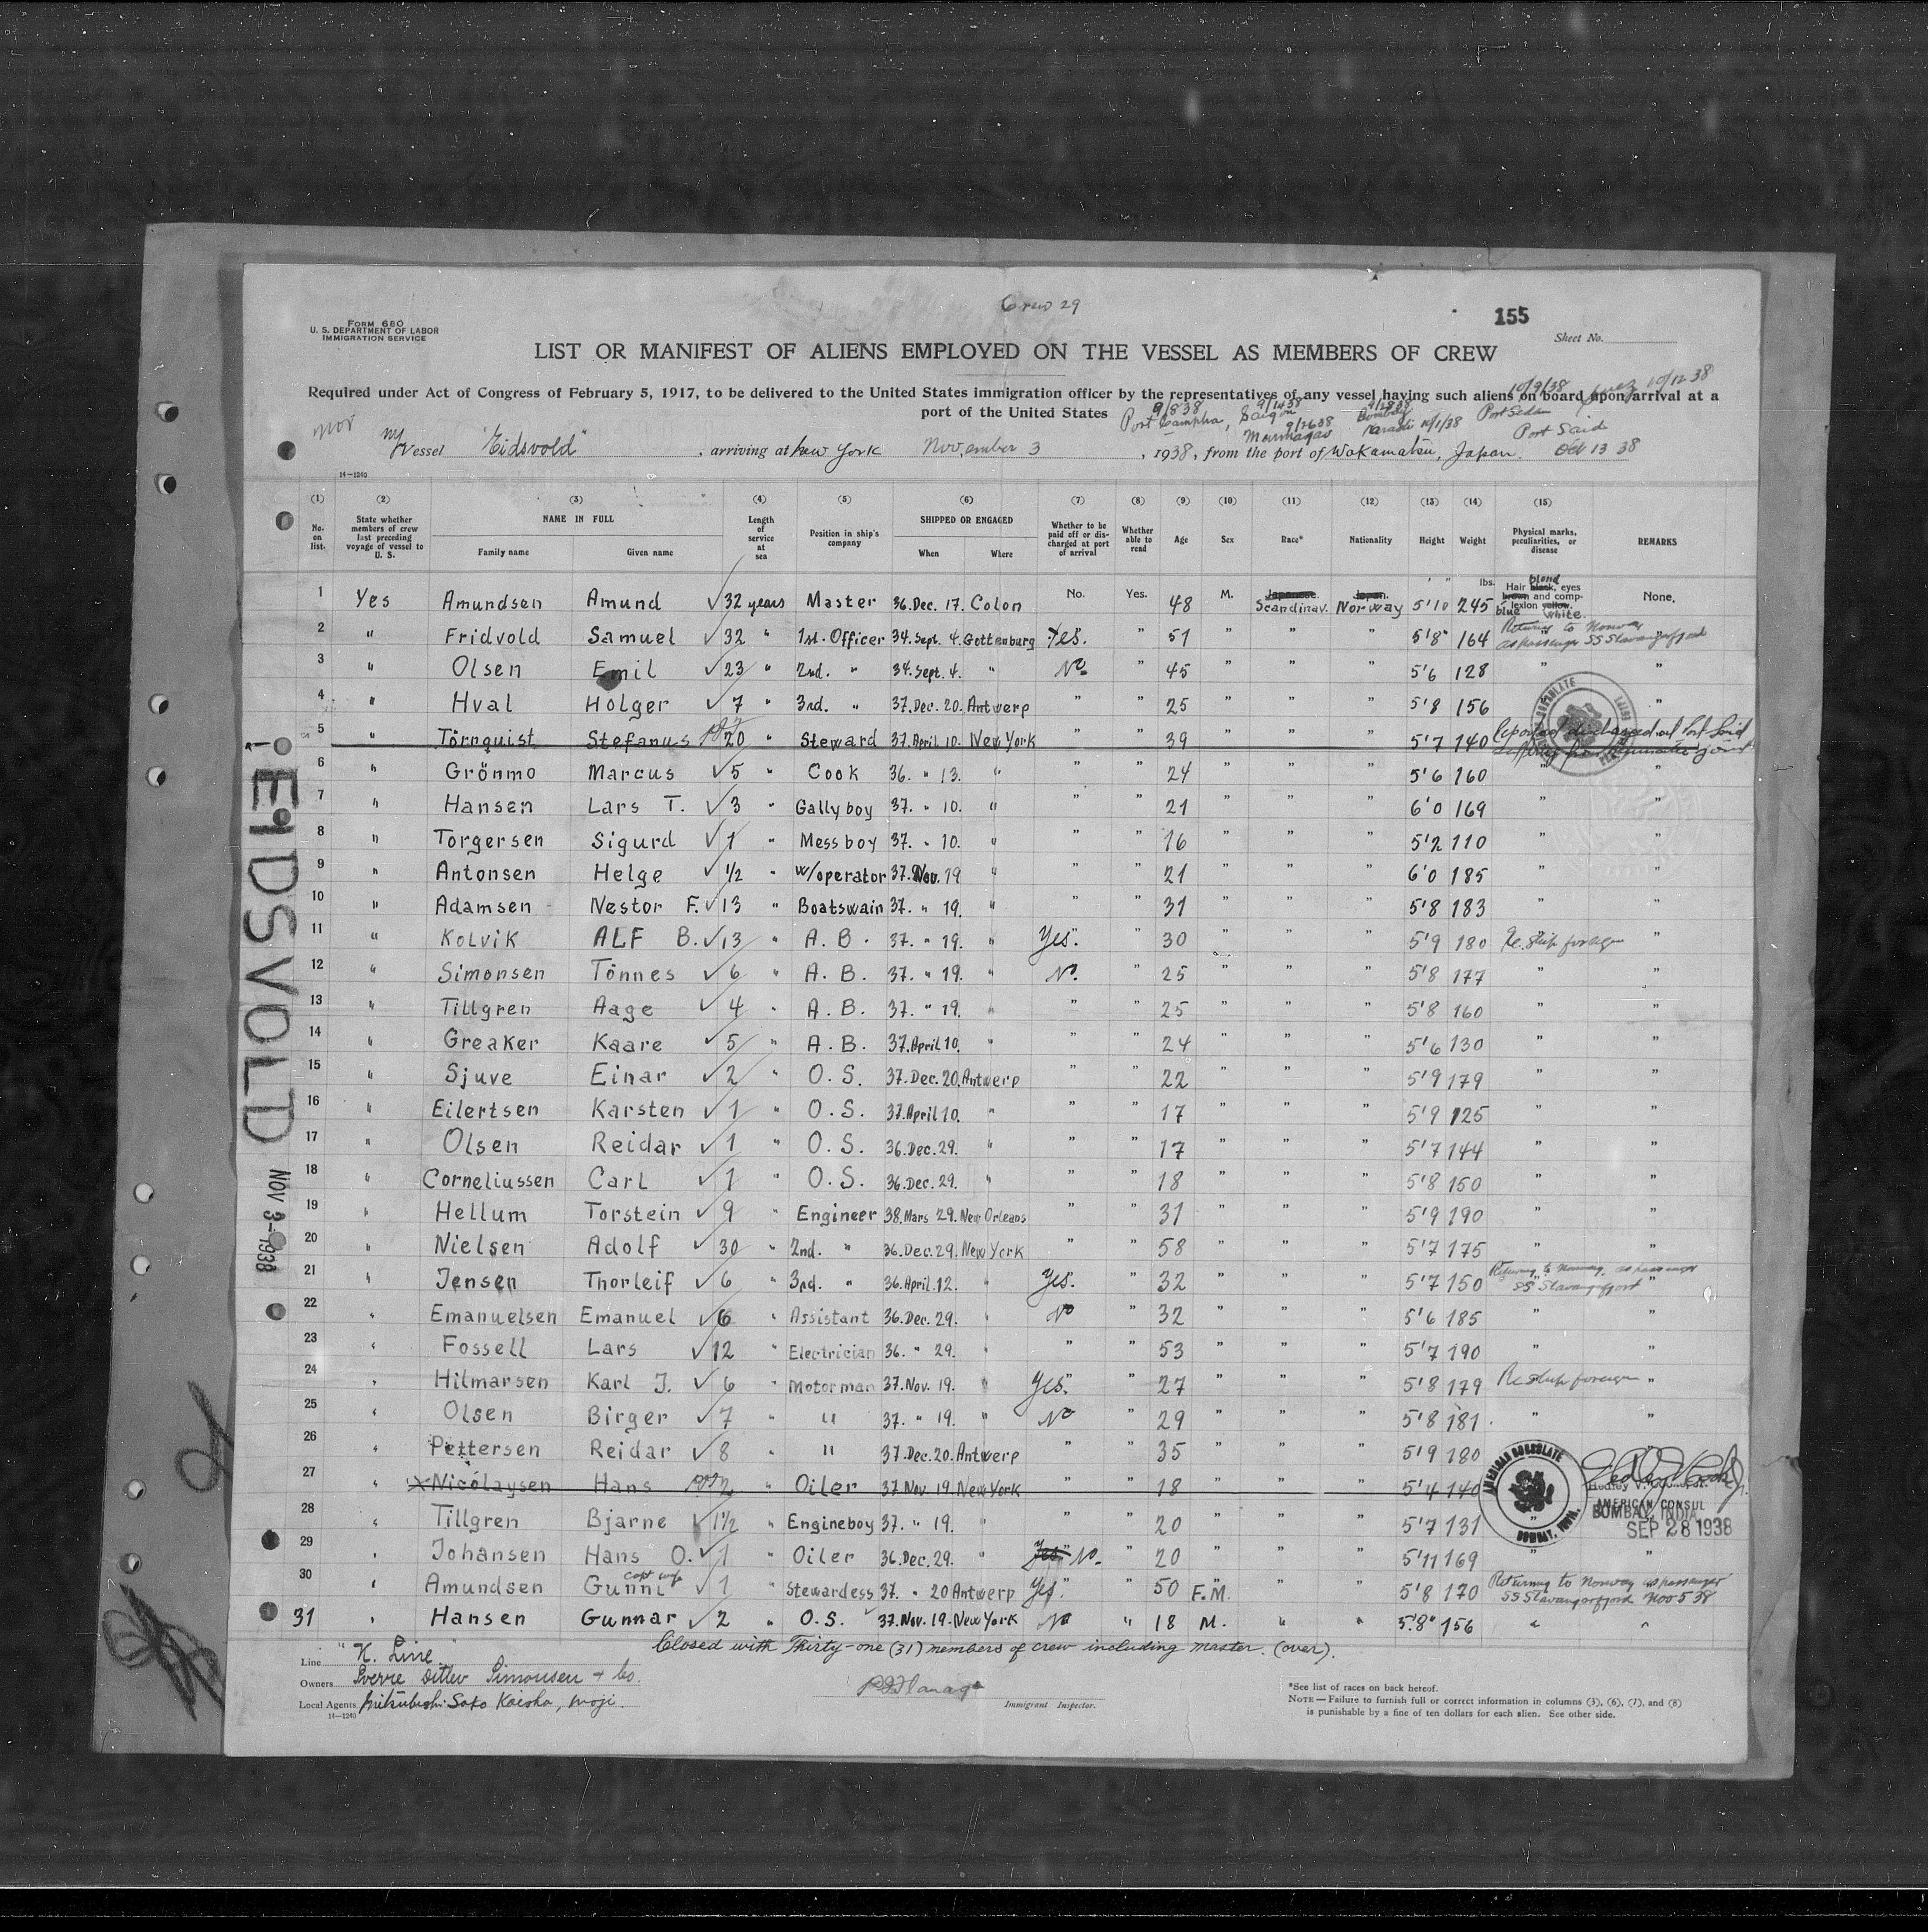 Crew 29
155
FORM 680
U. S. DEPARTMENT OF LABOR
IMMIGRATION SERVICE
Sheet No.
LIST OR MANIFEST OF ALIENS EMPLOYED ON THE VESSEL AS MEMBERS OF CREW
Required under Act of Congress of February 5, 1917, to be delivered to the United States immigration officer by the representatives of any vessel having such aliens on board upon arrival at a
port of the United States
10/9/38 Suez 10/12 38
9/8 38 9/14 38 9/28 38
Port Campha, Saigon Bombay Port Sudan
9/26 38
Mormagao Karachi 10/1/38 Port Said
Nor
Vessel "Eidsvold", arriving at New York November 3, 1938, from the port of Wakamatsu, Japan. Oct 13 38
14—1240
(1) (2) (3) (4) (5) (6) (7) (8) (9) (10) (11) (12) (13) (14) (15)
No. on list. State whether members of crew last preceding voyage of vessel to U. S. NAME IN FULL Family name Given name Length of service at sea Position in ship's company SHIPPED OR ENGAGED When Where Whether to be paid off or discharged at port of arrival Whether able to read Age Sex Race* Nationality Height Weight Physical marks, peculiarities, or disease REMARKS
1 Yes Amundsen Amund 32 years Master 36. Dec. 17. Colon No. Yes. 48 M. Japanese. Scandinav. Japan. Norway 5'10 lbs. 245 Hair black, blond eyes brown blue and complexion yellow. white. None.
2 " Fridvold Samuel 32 " 1st. Officer 34. Sept. 4. Gottenburg Yes. " 51 " " " 5'8" 164 Returning to Norway as passenger SS Stavangerfjord
3 " Olsen Emil 23 " 2nd. " 34. Sept. 4. " No " 45 " " " 5'6 128 " "
4 " Hval Holger 7 " 3rd. " 37. Dec. 20. Antwerp " " 25 " " " 5'8 156 "
5 " Törnquist Stefanus 20 " Steward 37. April. 10. New York " " 39 " " " 5'7 140 Reported discharged at Port Said
6 " Grönmo Marcus 5 " Cook 36. " 13. " " " 24 " " " 5'6 160 " "
7 " Hansen Lars T. 3 " Gally boy 37. " 10. " " " 21 " " " 6'0 169 " "
8 " Torgersen Sigurd 1 " Mess boy 37. " 10. " " " 16 " " " 5'2 110 " "
9 " Antonsen Helge 1/2 " w/operator 37. Nov. 19 " " " 21 " " " 6'0 185 " "
10 " Adamsen Nestor F. 13 " Boatswain 37. " 19. " " " 31 " " " 5'8 183 " "
11 " Kolvik ALF B. 13 " A. B. 37. " 19. " Yes. " 30 " " " 5'9 180 Re. Ship foreign "
12 " Simonsen Tönnes 6 " A. B. 37. " 19. " No. " 25 " " " 5'8 177 " "
13 " Tillgren Aage 4 " A. B. 37. " 19. " " " 25 " " " 5'8 160 " "
14 " Greaker Kaare 5 " A. B. 37. April 10. " " " 24 " " " 5'6 130 " "
15 " Sjuve Einar 2 " O. S. 37. Dec. 20. Antwerp " " 22 " " " 5'9 179 " "
16 " Eilertsen Karsten 1 " O. S. 37. April 10. " " " 17 " " " 5'9 125 " "
17 " Olsen Reidar 1 " O. S. 36. Dec. 29. " " " 17 " " " 5'7 144 " "
18 " Corneliussen Carl 1 " O. S. 36. Dec. 29. " " " 18 " " " 5'8 150 " "
19 " Hellum Torstein 9 " Engineer 38. Mars 29. New Orleans " " 31 " " " 5'9 190 " "
20 " Nielsen Adolf 30 " 2nd. " 36. Dec. 29. New York " " 58 " " " 5'7 175 " "
21 " Jensen Thorleif 6 " 3rd. " 36. April. 12. " Yes. " 32 " " " 5'7 150 Returning to Norway, as passenger SS Stavangerfjord "
22 " Emanuelsen Emanuel 6 " Assistant 36. Dec. 29. " No " 32 " " " 5'6 185 " "
23 " Fossell Lars 12 " Electrician 36. " 29. " " " 53 " " " 5'7 190 " "
24 " Hilmarsen Karl J. 6 " Motorman 37. Nov. 19. " Yes. " 27 " " " 5'8 179 Re ship foreign "
25 " Olsen Birger 7 " " 37. " 19. " No " 29 " " " 5'8 181. " "
26 " Pettersen Reidar 8 " " 37. Dec. 20. Antwerp " " 35 " " " 5'9 180
27 " X Nicolaysen Hans 2 " Oiler 37. Nov. 19. New York " " 18 " " " 5'4 140
28 " Tillgren Bjarne 1 1/2 " Engineboy 37. " 19. " " " 20 " " " 5'7 131
29 " Johansen Hans O. 1 " Oiler 36. Dec. 29. " Yes No. " 20 " " " 5'11 169 " "
30 " Amundsen Gunni Capt wife 1 " Stewardess 37. " 20 Antwerp Yes " 50 F.M. " " 5'8 170 Returning to Norway as passenger SS Stavangerfjord Nov 5 38
31 " Hansen Gunnar 2 " O. S. 37. Nov. 19. New York No " 18 M. " " 5'8" 156 " "
AMERICAN CONSULATE
BOMBAY, INDIA.
AMERICAN CONSUL
BOMBAY, INDIA
SEP 28 1938
Closed with Thirty-one (31) members of crew including master. (over).
Line "K. Line"
Owners Sverre Ditlev Simonsen & Co.
Local Agents Mitsubishi Soko Kaisha, Moji.
14—1240
Immigrant Inspector.
*See list of races on back hereof.
NOTE—Failure to furnish full or correct information in columns (3), (6), (7), and (8)
is punishable by a fine of ten dollars for each alien. See other side.
EIDSVOLD
NOV 3 - 1938